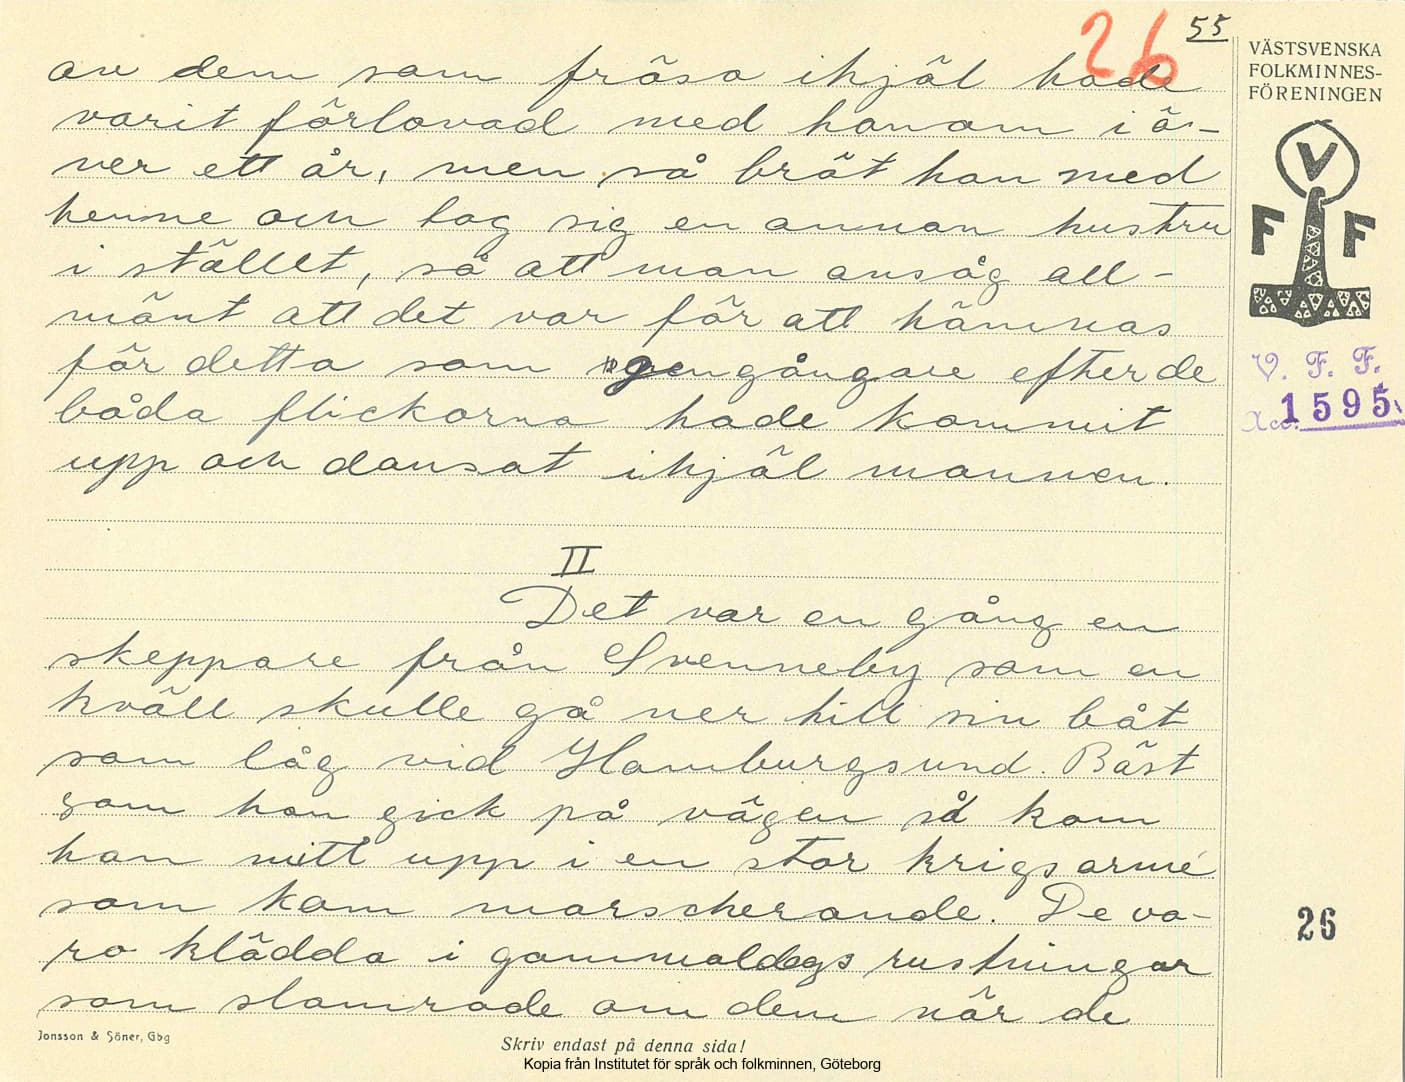 26 55
av dem som fröso ihjäl hade
varit förlovad med honom i ö-
ver ett år, men så bröt han med
henne och tog sig en annan hustru
i stället, så att man ansåg all-
mänt att det var för att hämnas
för detta som gengångare efter de
båda flickorna hade kommit
upp och dansat ihjäl mannen.
II
Det var en gång en
skeppare från Svenneby som en
kväll skulle gå ner till sin båt
som låg vid Hamburgsund. Bäst
som han gick på vägen så kom
han mitt upp i en stor krigsarmé
som kom marscherande. De va-
ro klädda i gammaldags rustningar
som slamrade om dem när de
Jonsson & Söner, Gbg
Skriv endast på denna sida!
Kopia från Institutet för språk och folkminnen, Göteborg
VÄSTSVENSKA
FOLKMINNES-
FÖRENINGEN
V
F F
V. F. F.
Acc. 1595
26